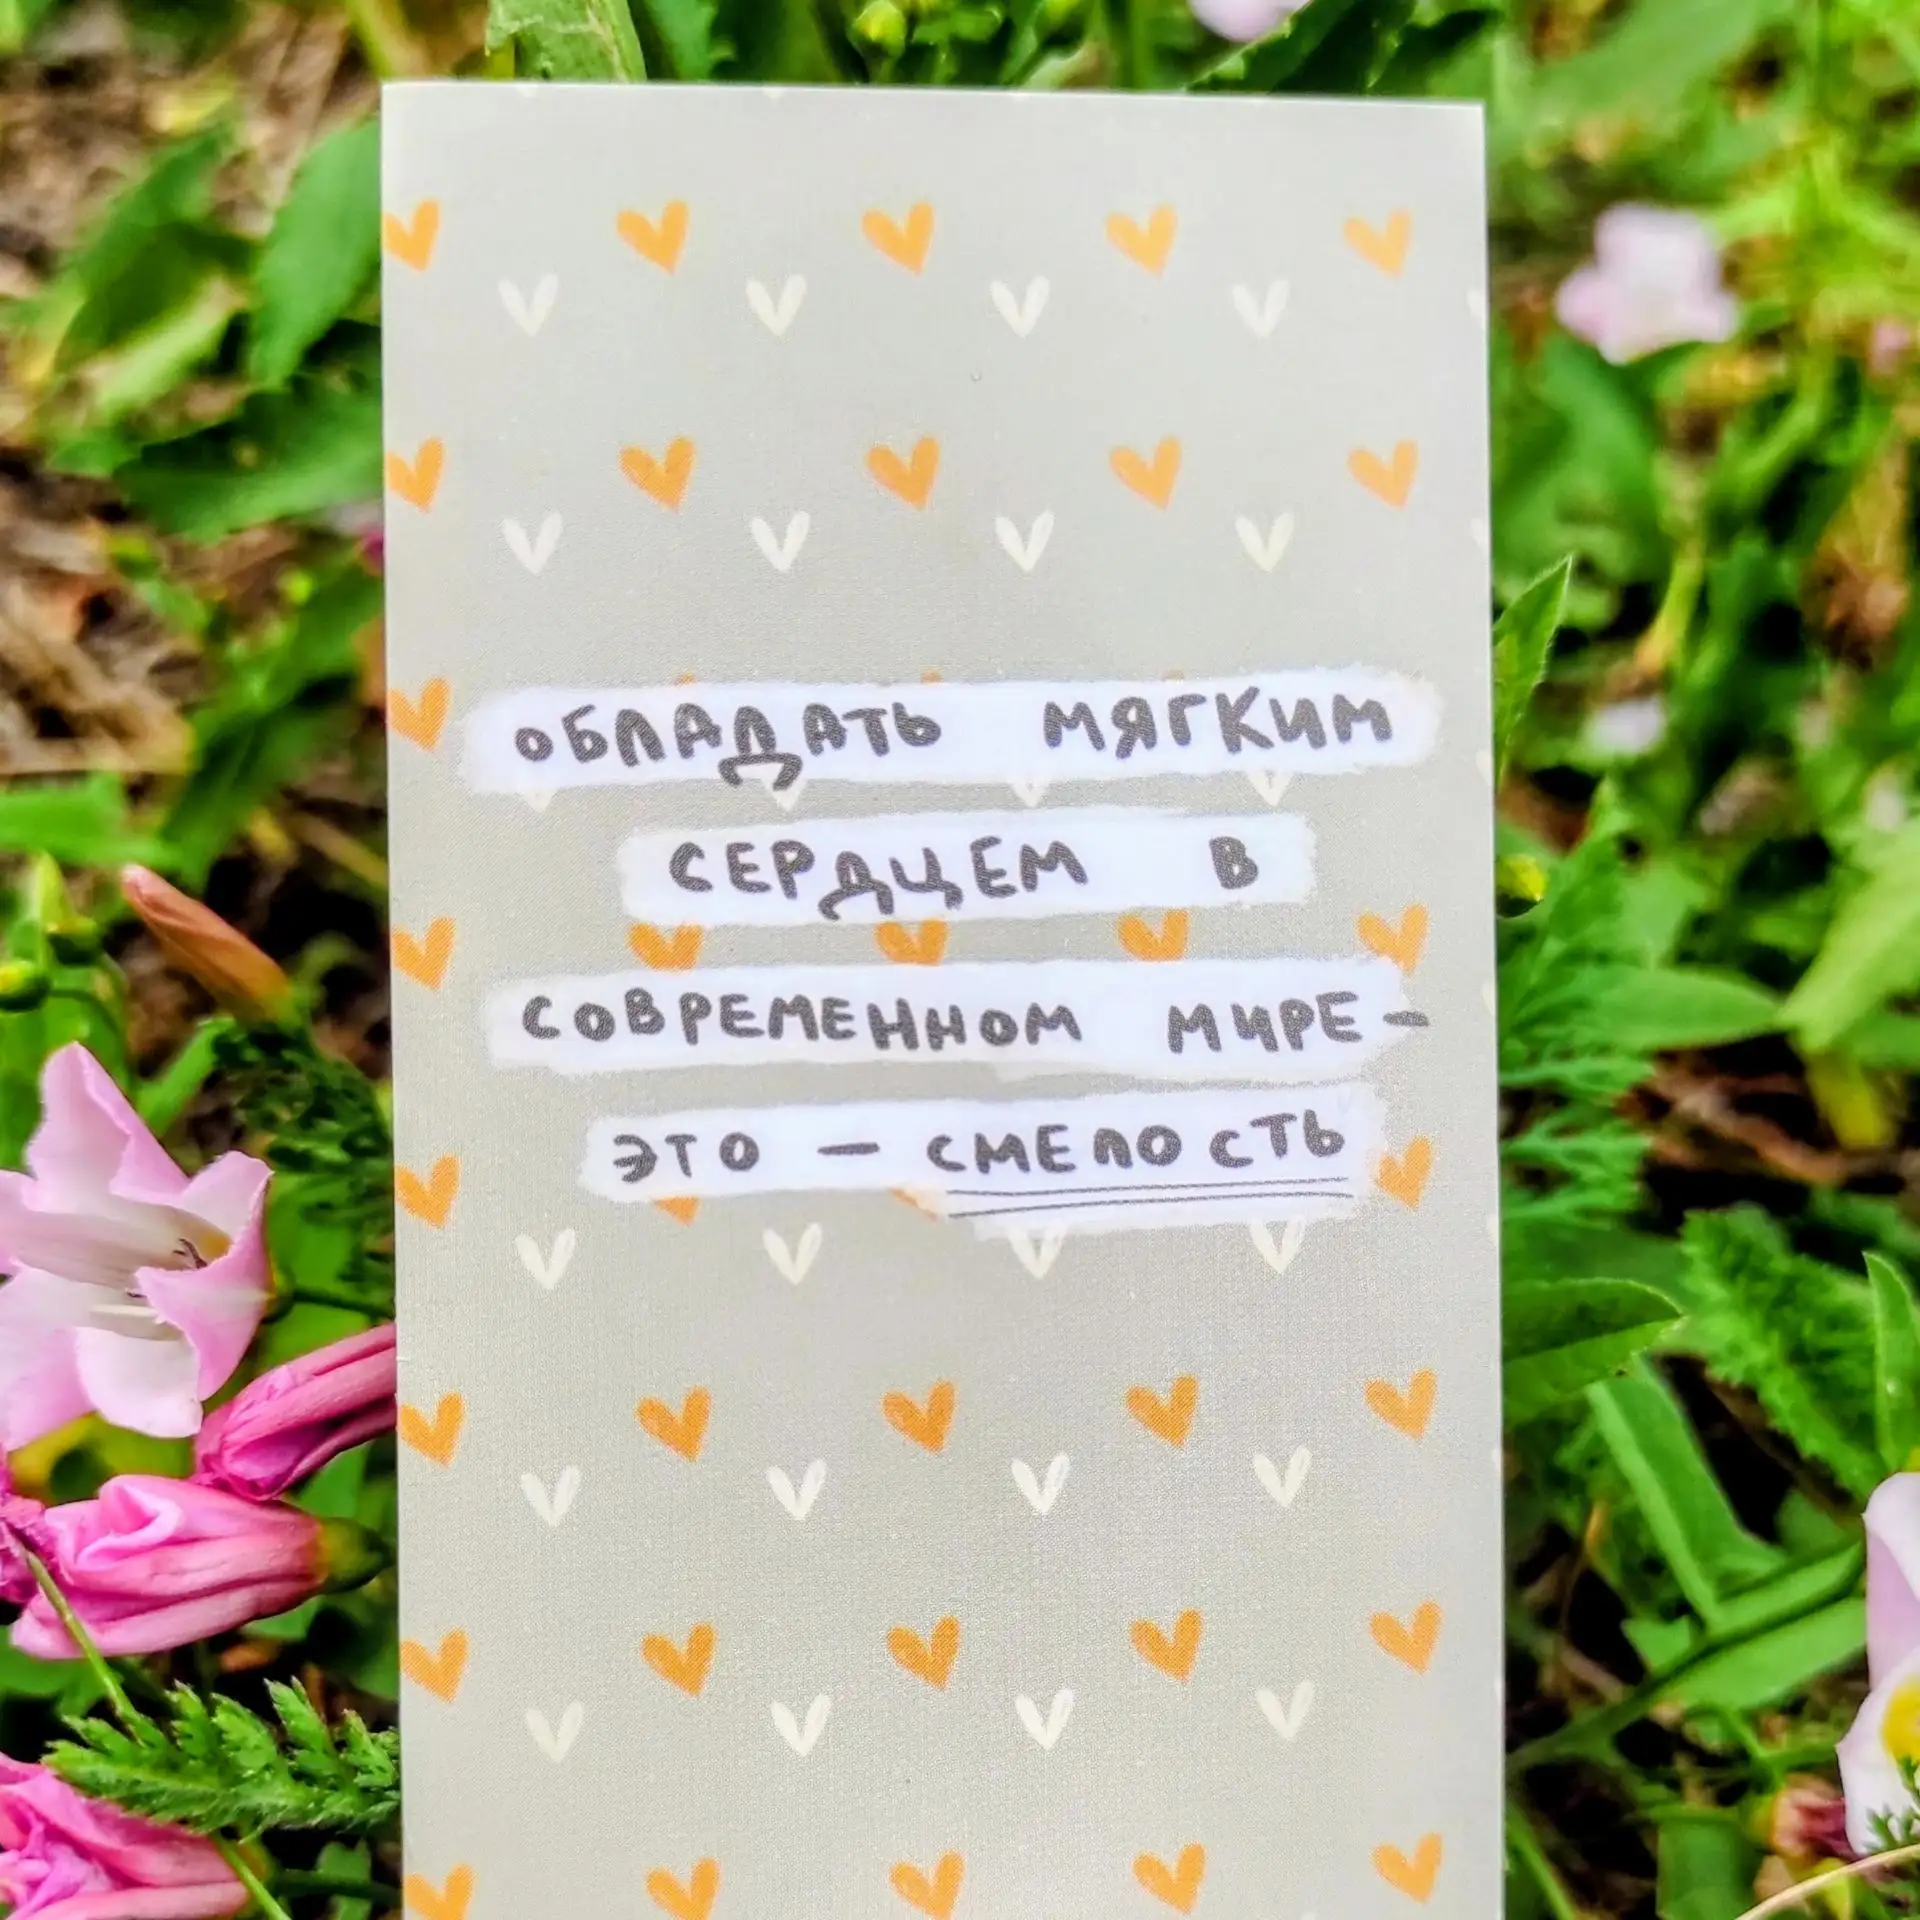 ОБЛАДАТЬ МЯГКИМ
СЕРДЦЕМ В
СОВРЕМЕННОМ МИРЕ -
ЭТО - СМЕЛОСТЬ